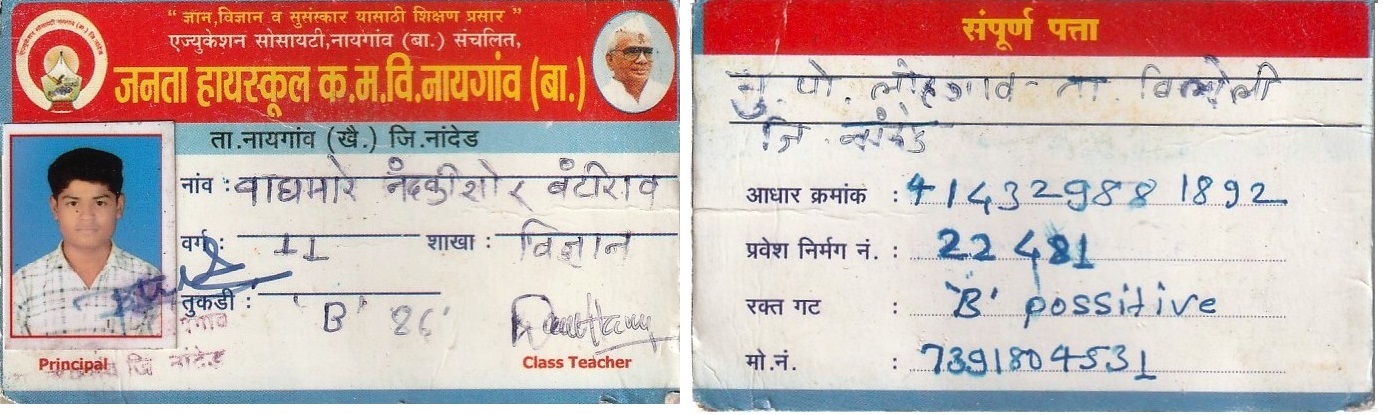 " ज्ञान,विज्ञान व सुसंस्कार यासाठी शिक्षण प्रसार "
एज्युकेशन सोसायटी,नायगांव (बा.) संचलित,
जनता हायस्कूल क.म.वि.नायगांव (बा.)
ता.नायगांव (खै.) जि.नांदेड
नांव : वाघमारे नंदकीशोर बंटीराव
वर्ग : 11 शाखा : विज्ञान
तुकडी : 'B'
जि नांदेड
Principal Class Teacher
संपूर्ण पत्ता
मु. पो. लोहगाव ता. बिलोली
जि. नांदेड
आधार क्रमांक : 414329881892
प्रवेश निर्मग नं. : 22481
रक्त गट : 'B' possitive
मो.नं. : 7391804531